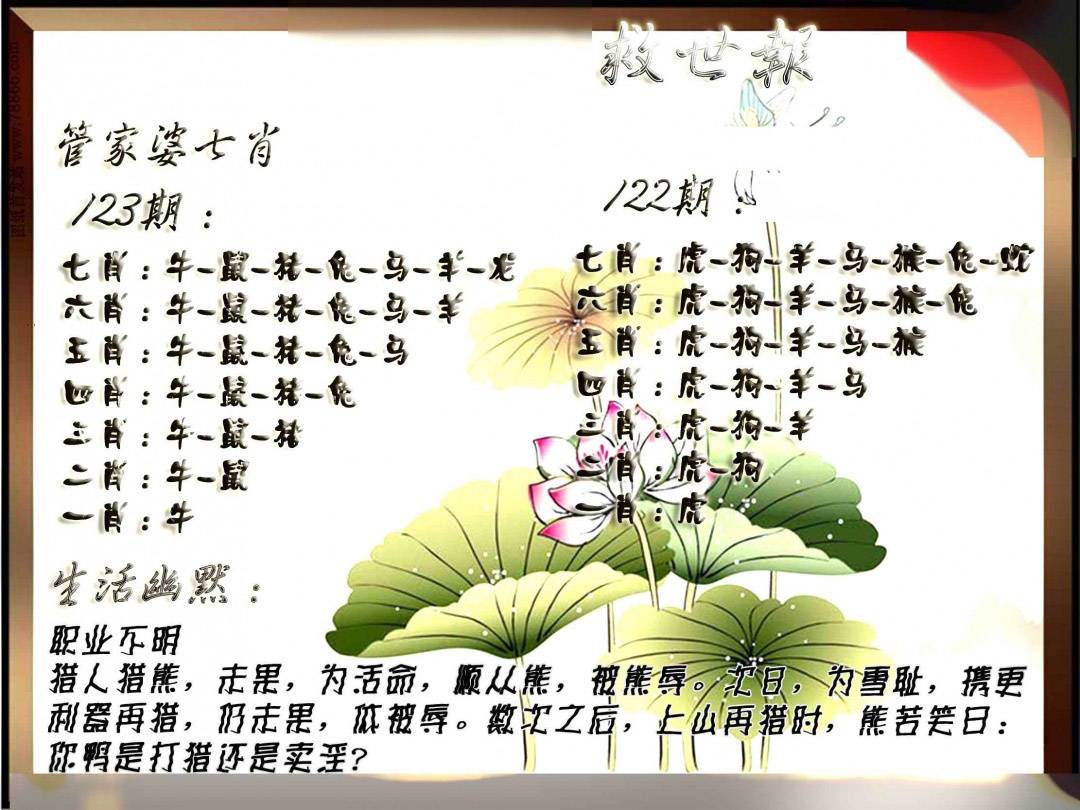 救世報
管家婆七肖
123期：
七肖：牛-鼠-猪-兔-马-羊-龙
六肖：牛-鼠-猪-兔-马-羊
五肖：牛-鼠-猪-兔-马
四肖：牛-鼠-猪-兔
三肖：牛-鼠-猪
二肖：牛-鼠
一肖：牛
122期：
七肖：虎-狗-羊-马-猴-兔-蛇
六肖：虎-狗-羊-马-猴-兔
五肖：虎-狗-羊-马-猴
四肖：虎-狗-羊-马
三肖：虎-狗-羊
二肖：虎-狗
一肖：虎
生活幽默：
职业不明
猎人猎熊，走果，为活命，顺从熊，被熊辱。次日，为雪耻，携更
利器再猎，仍走果，依被辱。数次之后，上山再猎时，熊苦笑曰：
你鸭是打猎还是卖淫？